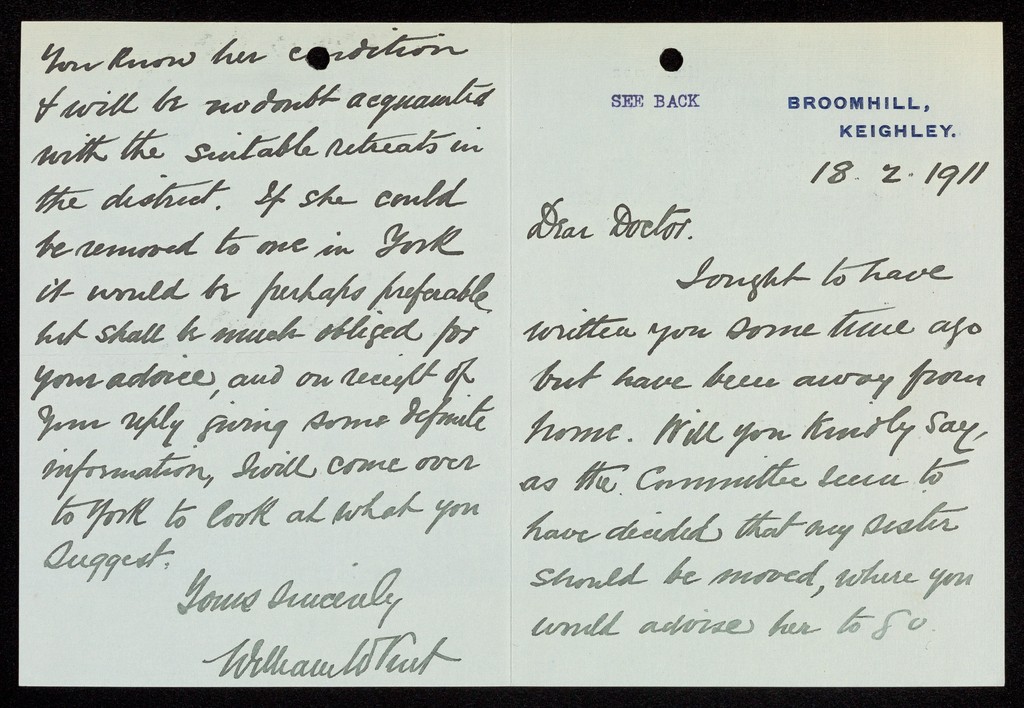 SEE BACK
BROOMHILL,
KEIGHLEY.
18. 2. 1911
Dear Doctor.
I ought to have
written you some time ago
but have been away from
home. Will you kindly say,
as the Committee seem to
have decided that my sister
should be moved, where you
would advise her to go.
You know her condition
& will be no doubt acquainted
with the suitable retreats in
the district. If she could
be removed to one in York
it would be perhaps preferable
but shall be much obliged for
your advice, and on receipt of
your reply giving some definite
information, I will come over
to York to look at what you
suggest.
Yours sincerely
William W